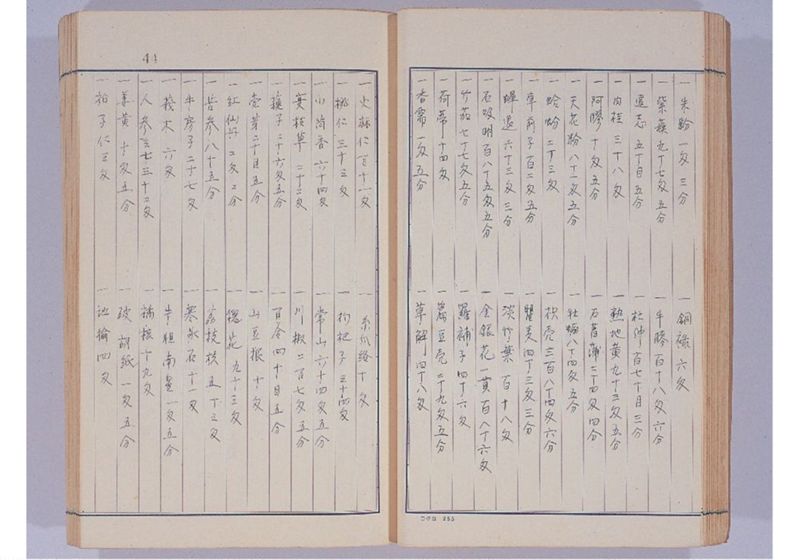 44
一朱粉 一匁三分 一銅緑 六匁
一紫蘇 九十七匁五分 一牛膠 百十八匁六分
一遠志 五十目五分 一杜仲 百七十目三分
一肉桂 三十八匁 一熟地黄 九十三匁五分
一阿膠 十匁五分 一石菖蒲 二十四匁四分
一天花粉 八十一匁五分 一牡蛎 八十四匁五分
一蛤粉 二十三匁 一枳売 三百八十四匁六分
一車前子 百二匁五分 一瞿麦 四十三匁三分
一蝉退 六十三匁三分 一淡竹葉 百十八匁
一石决明 百八十五匁五分 一金銀花 一貫百八十六匁
一竹茹 七十七匁五分 一羅補子 四十六匁
一荷蒂 十四匁 一扁豆売 二十九匁五分
一香薷 一匁五分 一草解 四十八匁
一火麻仁 百十一匁 一糸瓜絡 十匁
一桃仁 三十三匁 一枸杞子 三十四匁
一小茴香 六十四匁 一常山 六十四匁五分
草 二十二匁 一川椒 二百七匁五分
子 二十六匁五分 一百合 四十目五分
芽 二十目五分 一山豆根 十匁
一紅仙丹 二匁二分 一槐花 九十三匁
一苦参 八十五分 一荔枝核 五十三匁
一牛房子 二十七匁 一寒水石 十一匁
一莪木 六匁 一牛胆南星 一匁五分
一人参三七 三十二匁 核 十九匁
一姜黄 十匁五分 一破胡紙 一匁五分
一柏子仁 三匁 一地楡 四匁